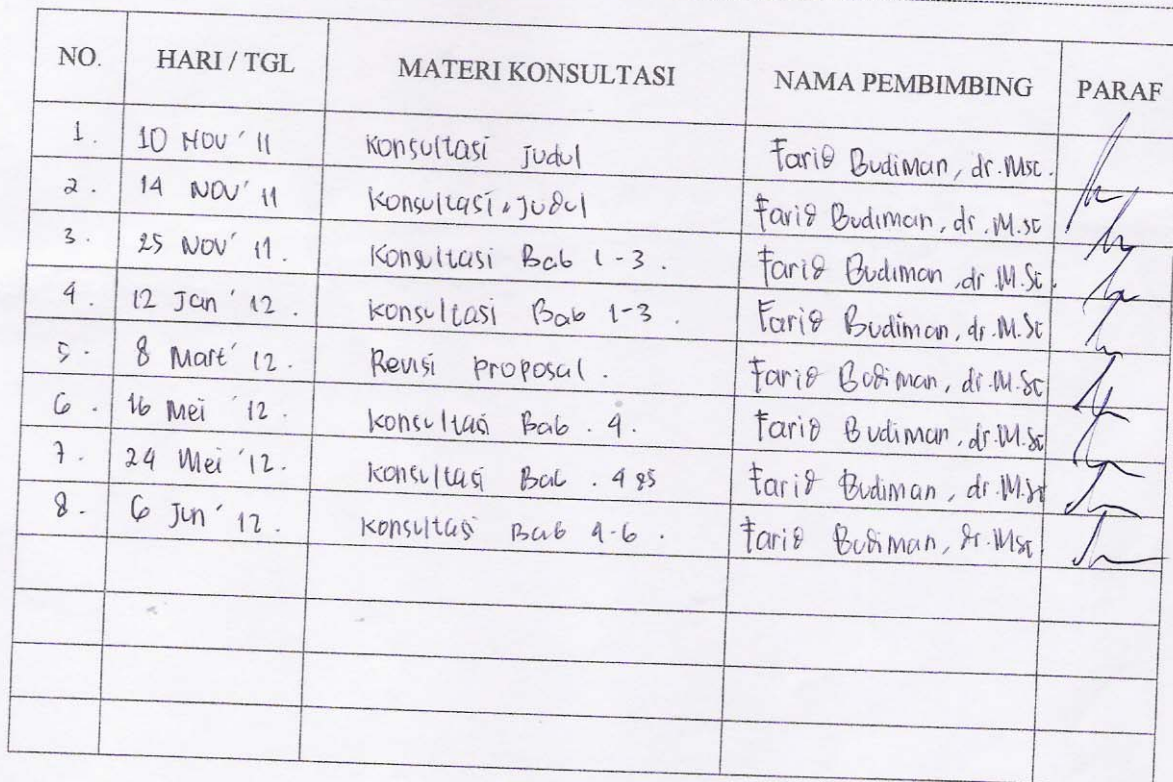 NO. HARI / TGL MATERI KONSULTASI NAMA PEMBIMBING PARAF
1. 10 NOV '11 Konsultasi Judul Farid Budiman, dr. Msc.
2. 14 NOV' 11 Konsultasi Judul Farid Budiman, dr. M.sc
3. 25 NOV' 11. Konsultasi Bab 1-3. Farid Budiman, dr. M.Sc.
4. 12 Jan '12. Konsultasi Bab 1-3. Farid Budiman, dr. M.Sc
5. 8 Mart' 12. Revisi proposal. Farid Budiman, dr. M.Sc
6. 16 Mei '12. Konsultasi Bab. 4. Farid Budiman, dr. M.Sc
7. 24 Mei '12. Konsultasi Bab. 4 &5 Farid Budiman, dr. M.Sc
8. 6 Jun' 12. Konsultasi Bab 4-6. Farid Budiman, dr. Msc